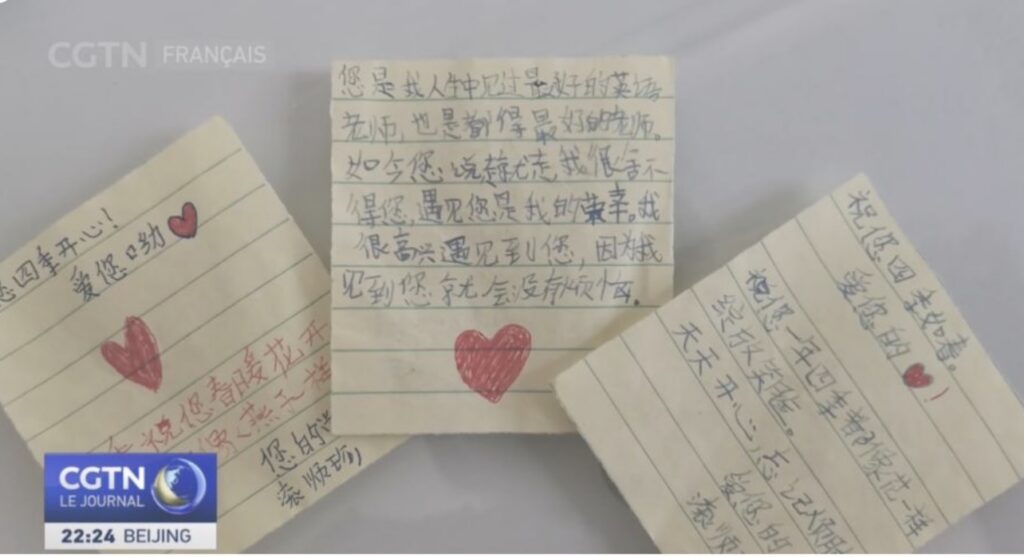 CGTN FRANÇAIS
您是我人生中见过最好的英语
老师,也是都得最好的老师。
如今您说走就走我很舍不
得您,遇见您是我的荣幸。我
很高兴遇见到您,因为我
见到您就会没有烦恼。
您四季开心!
爱您哟
祝您春暖花开
您的
祝您四季如春。
爱您的!
祝您一年四季都像花一样
绽放笑脸。
天天开心,忘记烦
爱您的
CGTN
LE JOURNAL
22:24 BEIJING